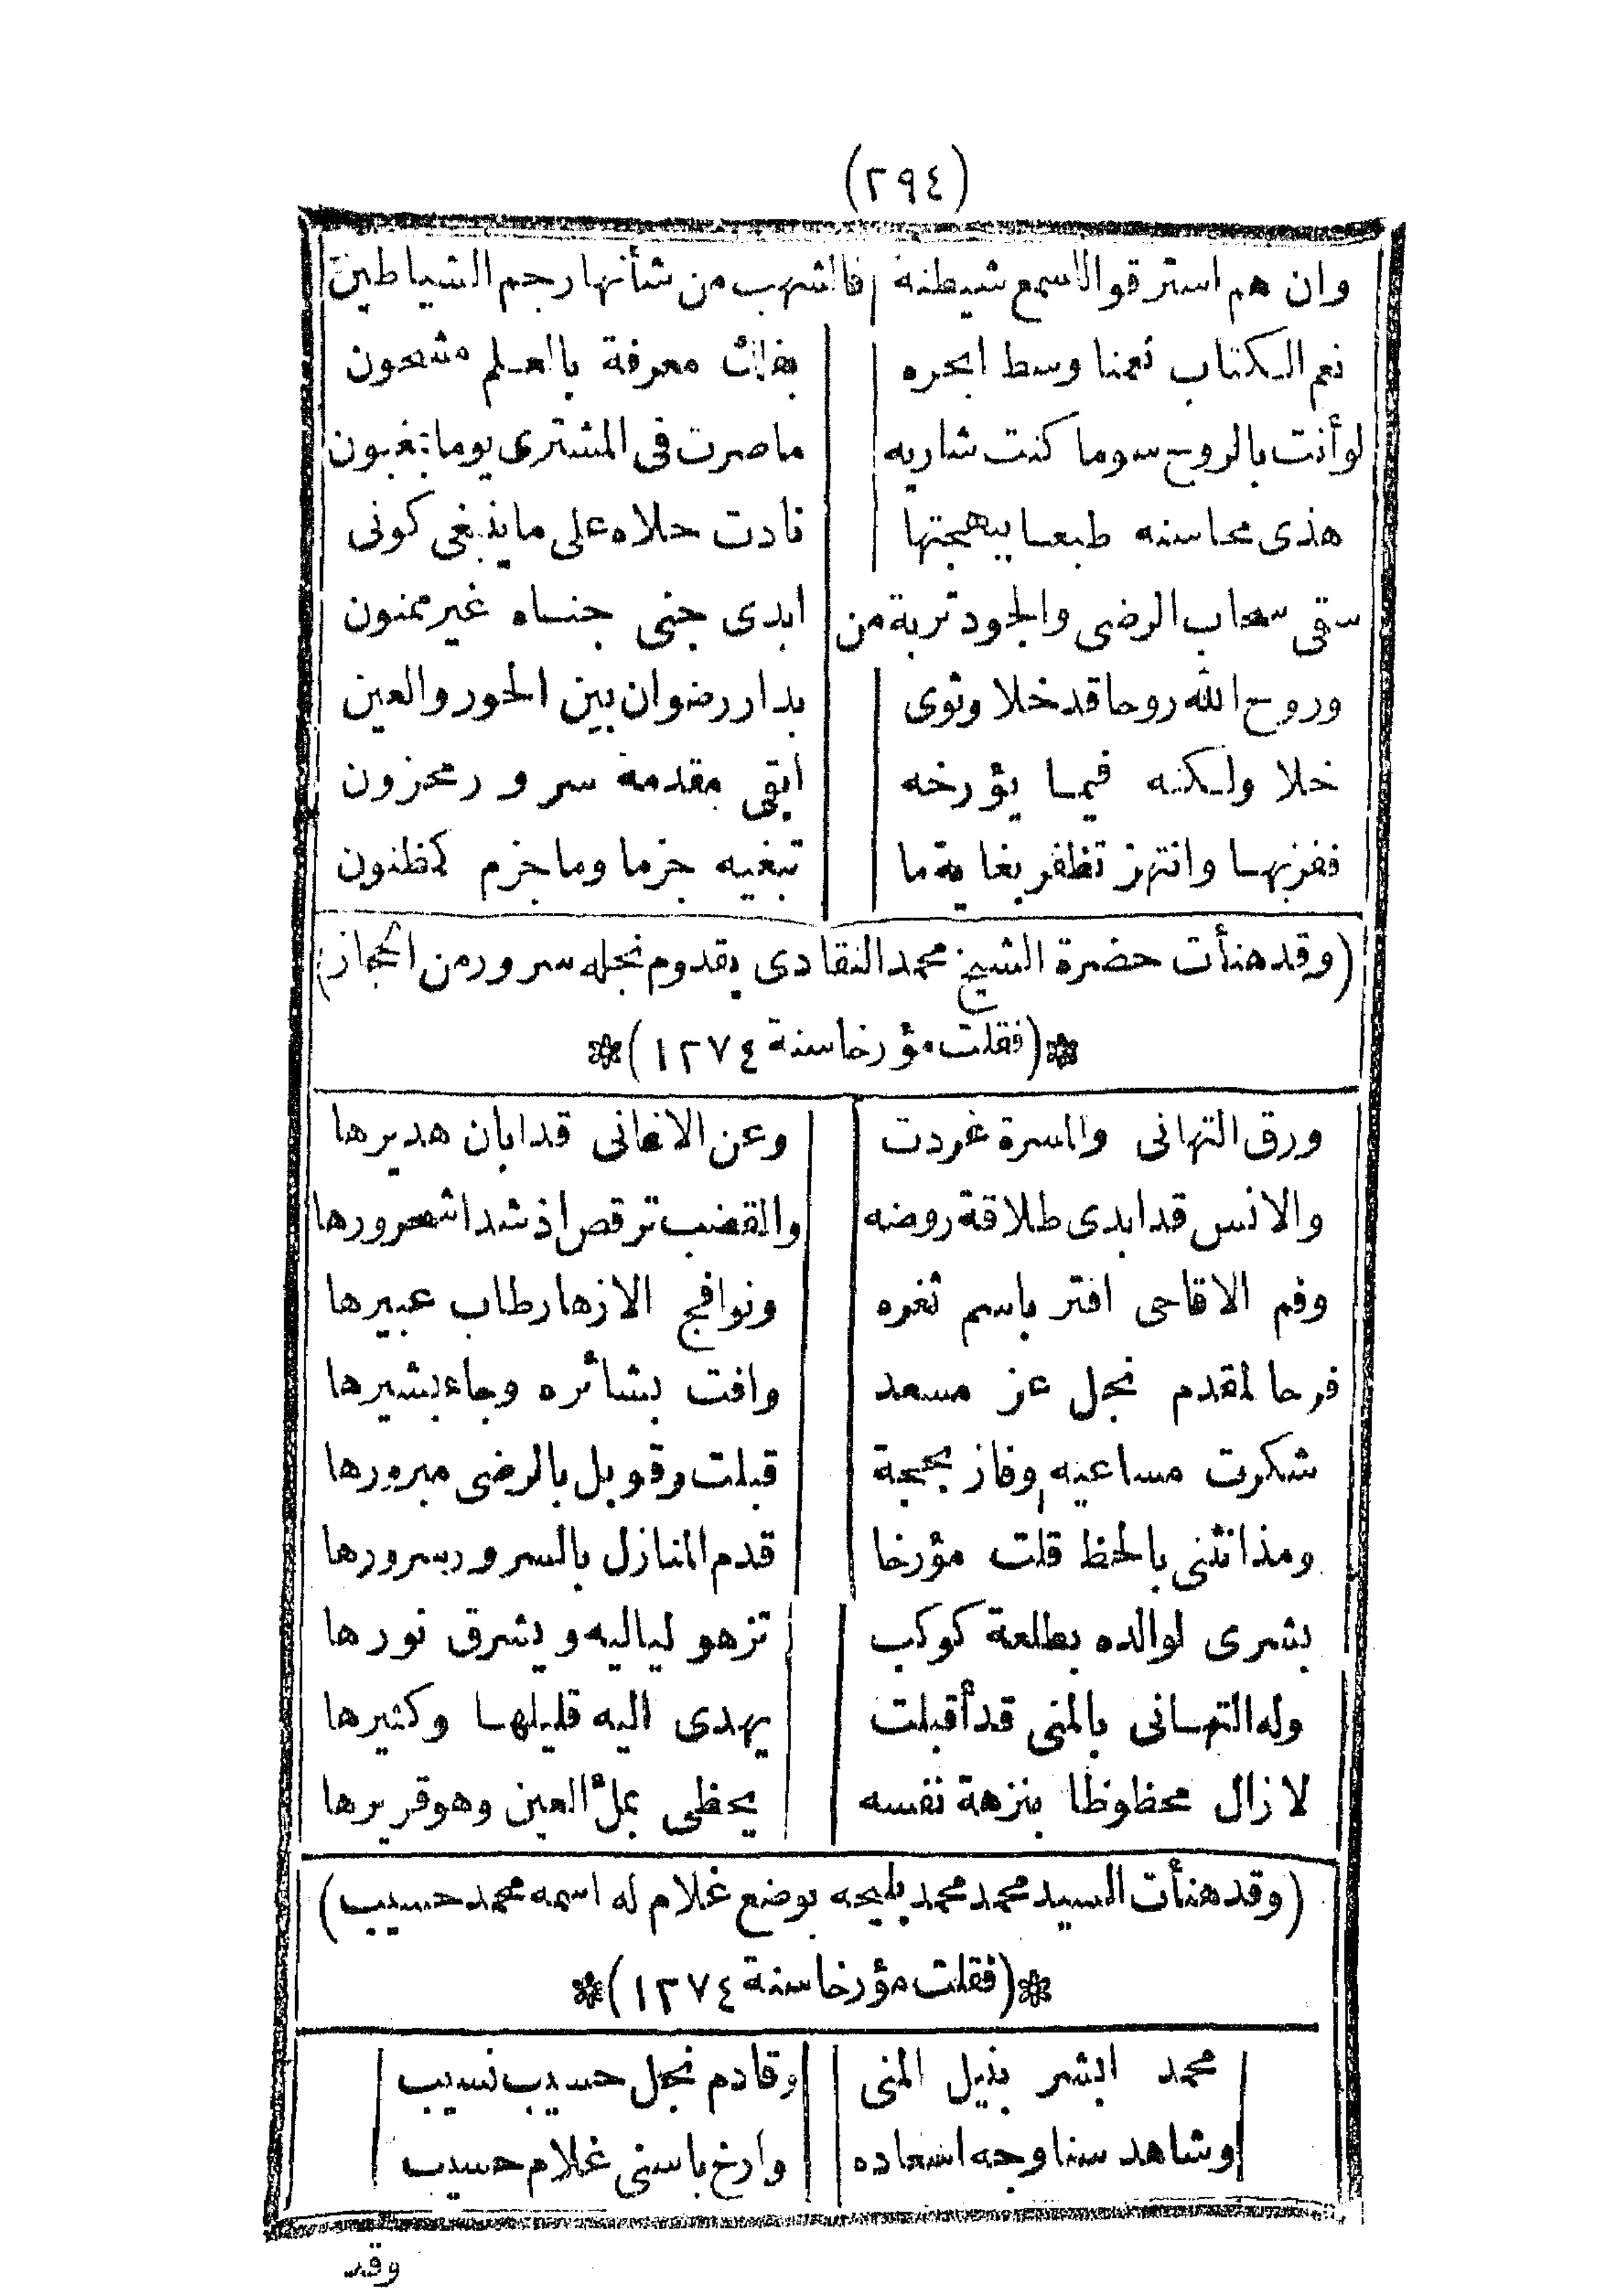 (٢٩٤)
وان هم استرقوا لاسمع شيطنة فالشهب من شأنها رجم الشياطين
نعم الكتاب نعمنا وسط ابحره بفلك معرفة بالعلم مشحون
لوأنت بالروح سوما كنت شاريه ماصرت فى المشترى يوما بمغبون
هذى محاسنه طبعا ببهجتها نادت حلاه على ماينبغى كونى
سقى سحاب الرضى والجود تربة من ابدى جنى جناه غير ممنون
وروح الله روحا قد خلا وثوى بدار رضوان بين الحور والعين
خلا ولكنه فيما يؤرخه ابقى مقدمة سرور محزون
ففزبها وانتهز تظفر بغاية ما تبغيه جزما وماجزم كمظنون
(وقد هنأت حضرة الشيخ محمد النقادى بقدوم نجله سرور من الحجاز)
*(فقلت مؤرخا سنة ١٢٧٤)*
ورق التهانى والمسرة غردت وعن الاغانى قد ابان هديرها
والانس قد ابدى طلاقة روضه والقضب ترقص اذ شدا شحرورها
وفم الاقاحى افتر باسم ثغره ونوافج الازهار طاب عبيرها
فرحا لمقدم نجل عز مسعد وافت بشائره وجاء بشيرها
شكرت مساعيه وفاز بحجة قبلت وقوبل بالرضى مبرورها
ومذ انثنى بالحظ قلت مؤرخا قدم المنازل بالسرور سرورها
بشرى لوالده بطلعة كوكب تزهو لياليه ويشرق نورها
وله التهانى بالمنى قد أقبلت يهدى اليه قليلها وكثيرها
لازال محظوظا بنزهة نفسه يحظى بملْ العين وهو قريرها
(وقد هنأت السيد محمد محمد بليحه بوضع غلام له اسمه محمد حسيب)
*(فقلت مؤرخا سنة ١٢٧٤)*
محمد ابشر بنيل المنى وقادم نجل حسيب نسيب
وشاهد سنا وجه اسعاده وارخ باسنى غلام حسيب
وقد